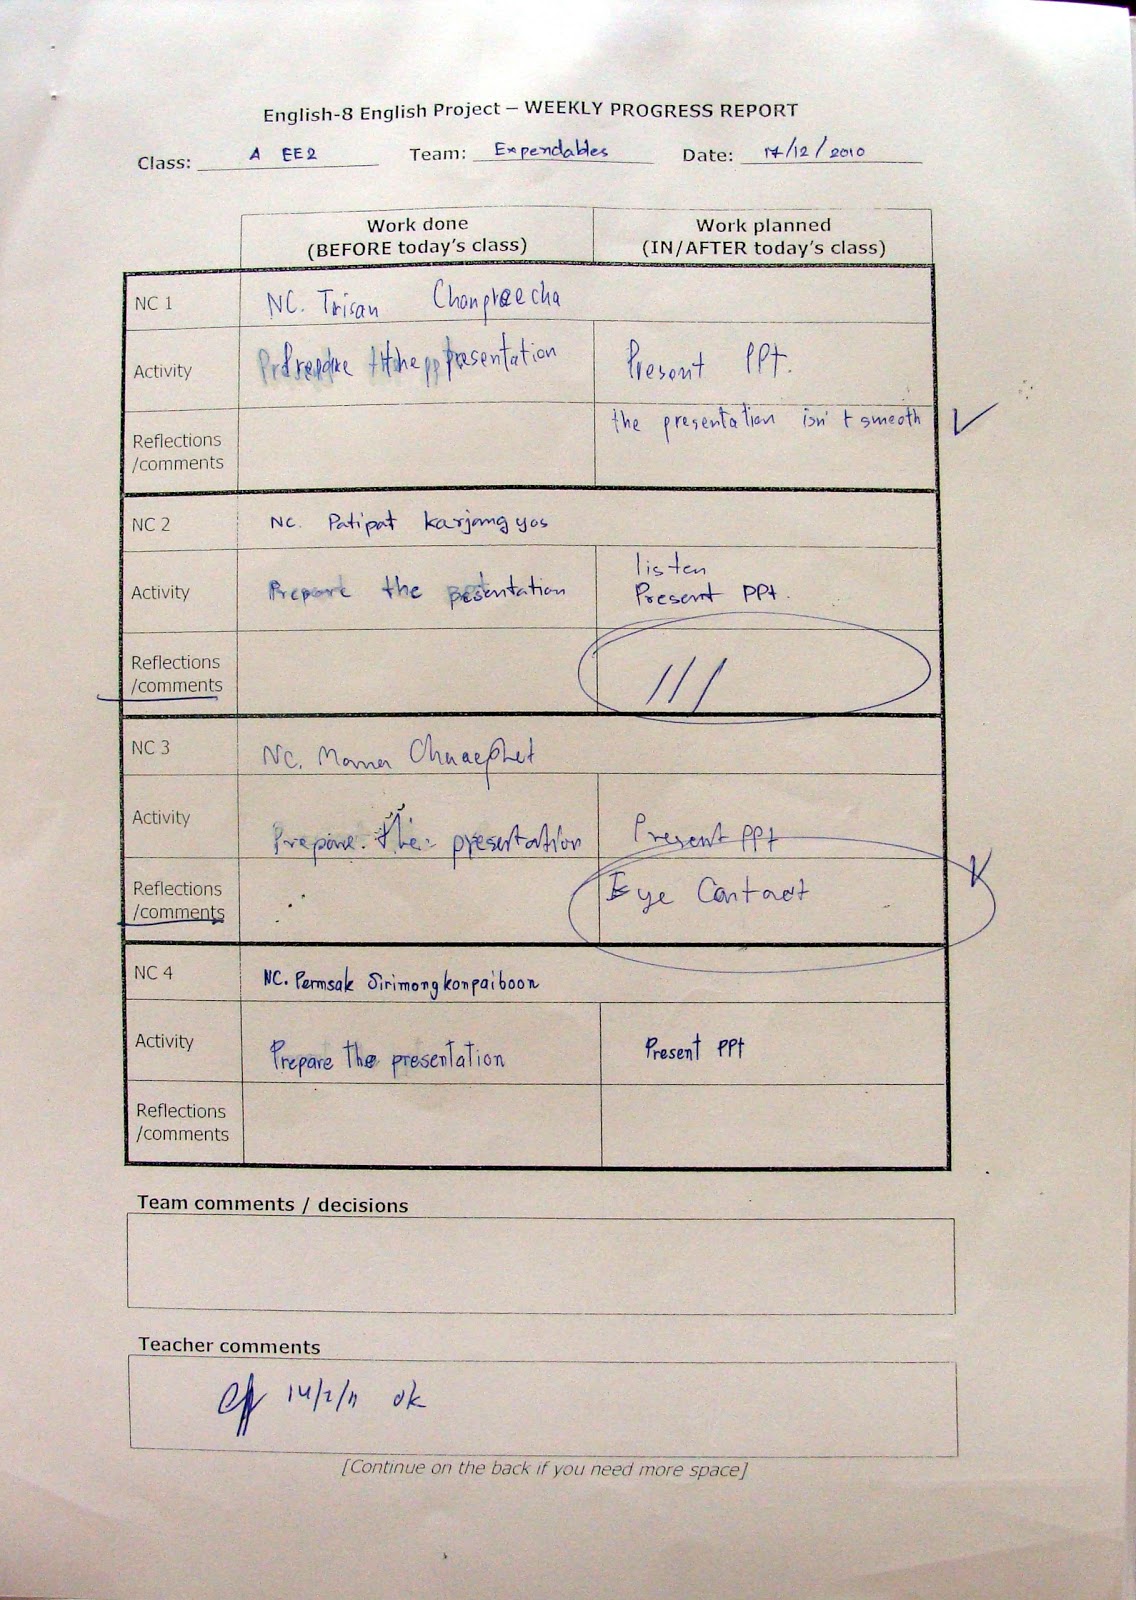 English-8 English Project – WEEKLY PROGRESS REPORT
Class: A EE2 Team: Expendables Date: 17/12/2010
Work done Work planned
(BEFORE today's class) (IN/AFTER today's class)
NC 1 NC. Trisan Chongpreecha
Activity Prepare the presentation Present PPt.
Reflections /comments the presentation isn't smooth
NC 2 NC. Patipat Karjangyos
Activity Prepare the presentation listen
Present PPt.
Reflections
/comments ///
NC 3 NC.
Activity Prepare the presentation Present PPt
Reflections Eye Contact
/comments
NC 4 NC. Permsak Sirimongkonpaiboon
Activity Prepare the presentation Present PPt
Reflections
/comments
Team comments / decisions
Teacher comments
14/2/11 ok
[Continue on the back if you need more space]